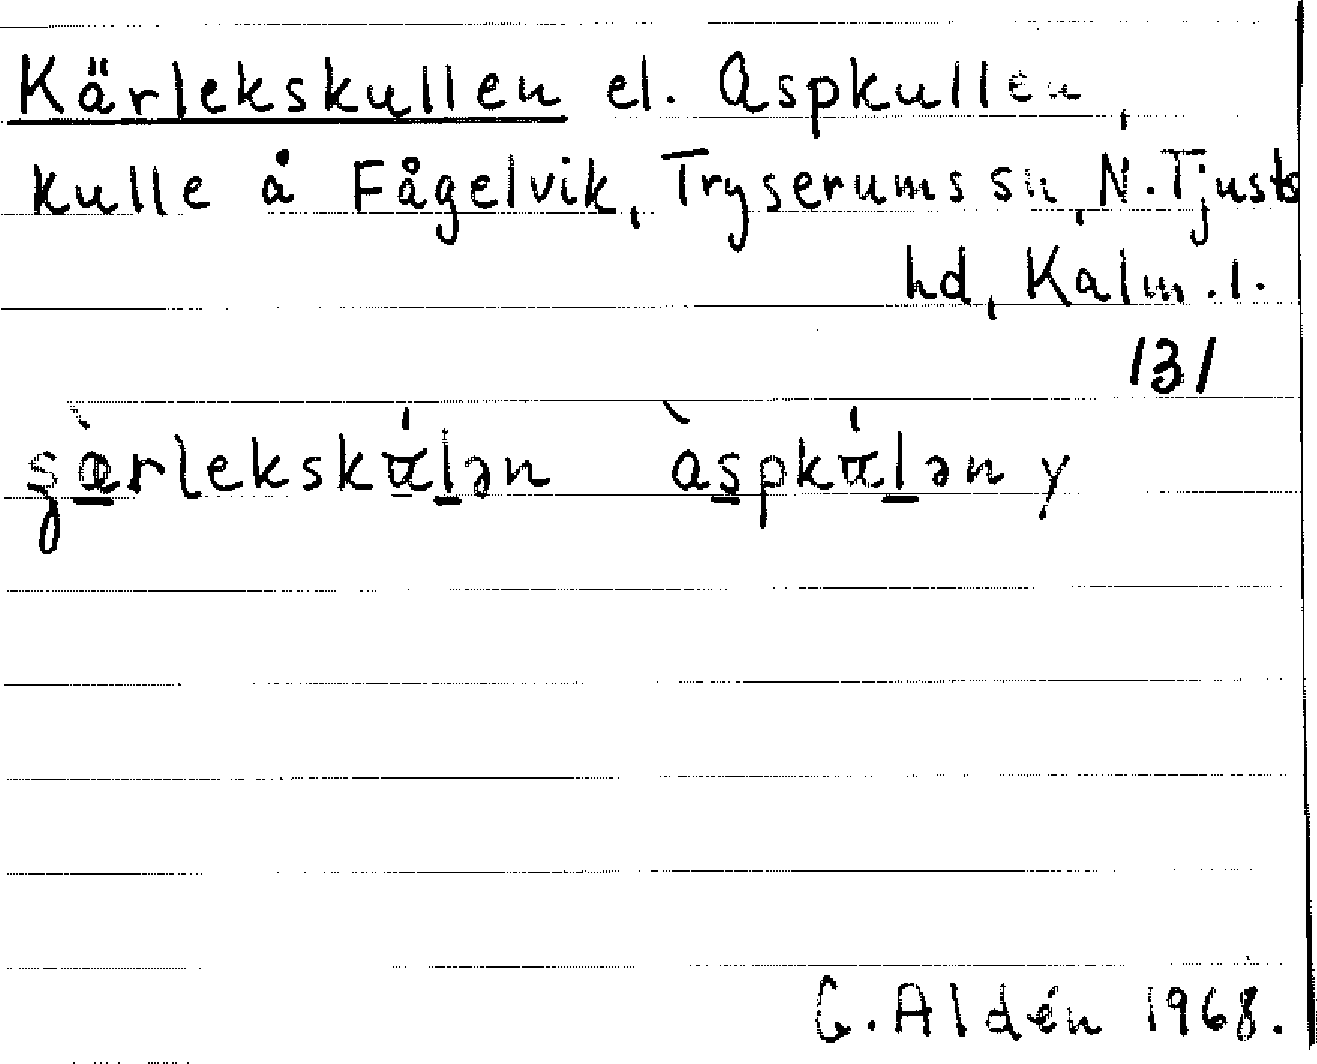 Kärlekskullen el. Aspkullen,
kulle å Fågelvik, Tryserums sn, N. Tjusts
hd, Kalm. l.
131
àspkálən y
G. Aldén 1968.